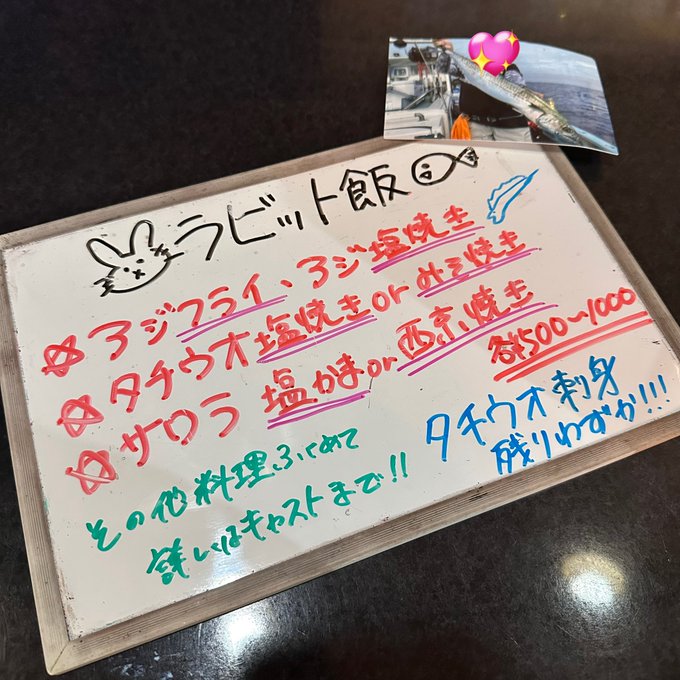 ラビット飯
☆アジフライ、アジ塩焼き
☆タチウオ塩焼きorみそ焼き
☆サワラ 塩かまor西京焼き
各500〜1000
タチウオ刺身
残りわずか!!!
その他料理ふくめて
詳しくはキャストまで!!